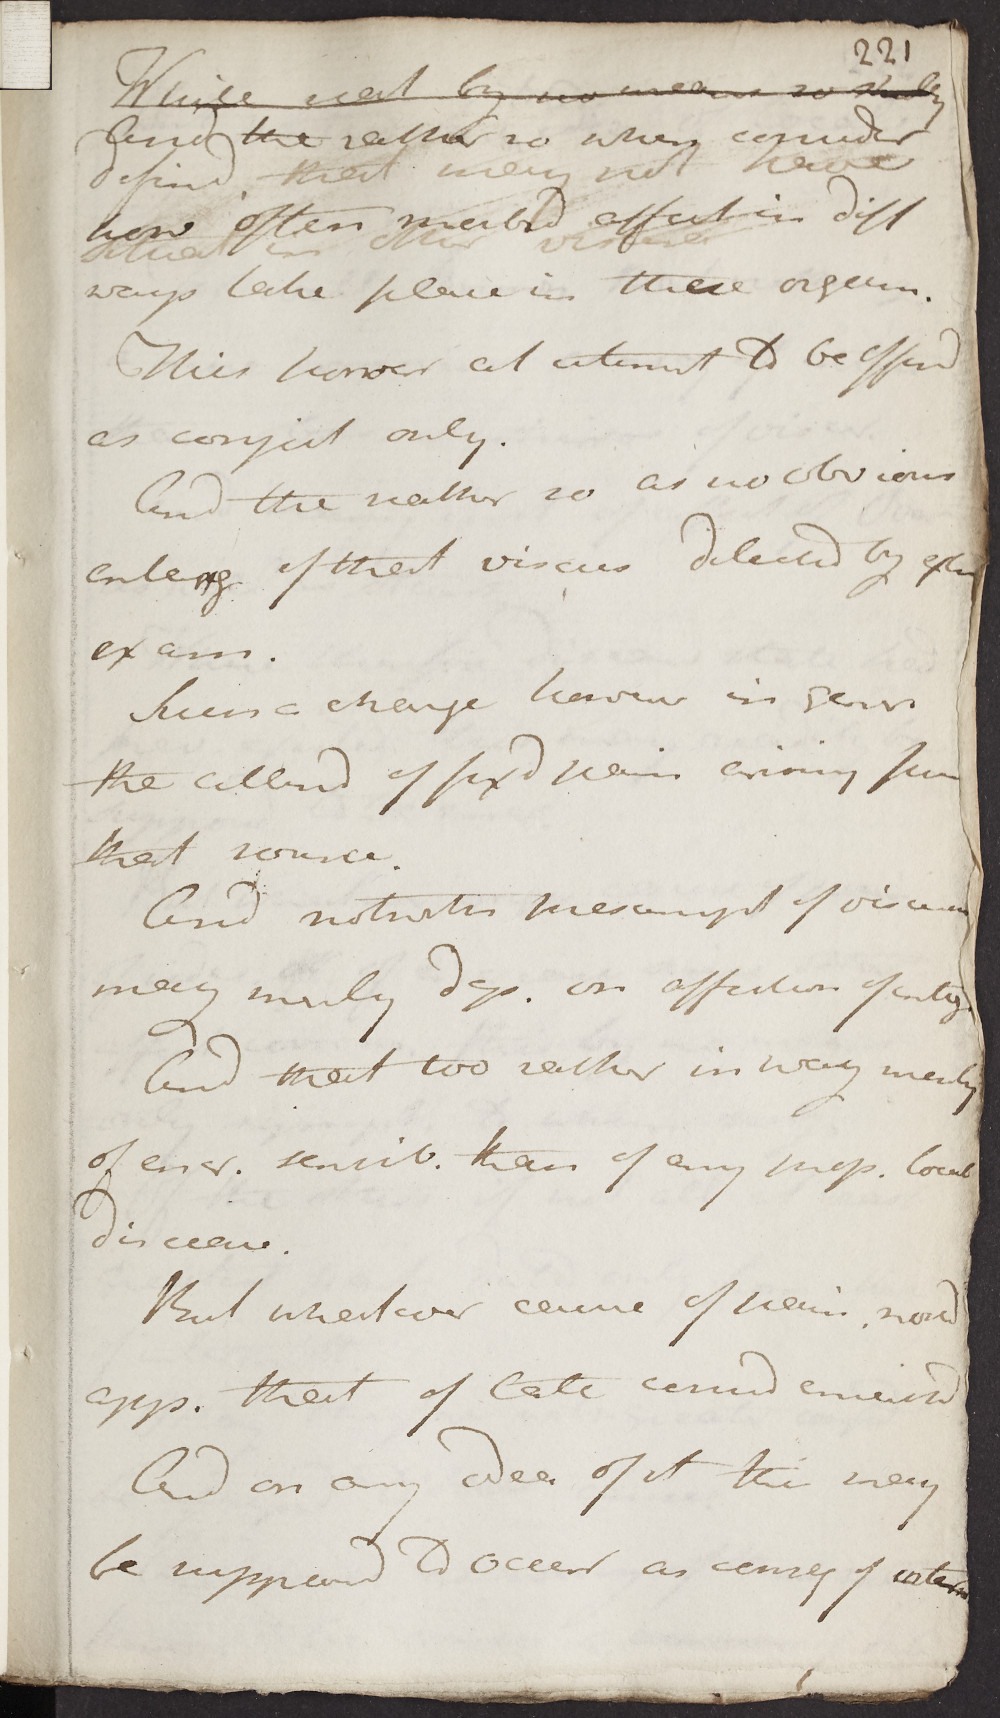 221
While not by no means so
And the rather so when consider
defind that may not have
how often morbid affect in diff
what in other viscera
ways take place in these organs.
This howevr at utmost to be offerd
as conject only.
And the rather so as no obvious
enlarg of that viscus detected by
exam.
Such a change however in genr
the attend of fixd pain arising from
that source.
And notwith presumpt of viscus
may merely dep. on affection of integ
And that too rather in way merely
of encr. sensib. than of any prop. local
disease.
But whatever cause of pain, would
app. that of late consid encreasd
And on any idea of it this may
be supposed to occur as conseq of intern